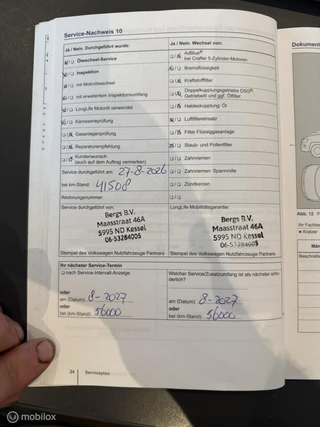 Service-Nachweis 10
Ja / Nein. Durchgeführt wurde:
Ölwechsel-Service
Inspektion
mit Motorölwechsel
mit erweitertem Inspektionsumfang
LongLife Motoröl verwendet
Karosserieprüfung
Gasanlagenprüfung
Reparaturempfehlung
Kundenwunsch
(auch auf dem Auftrag vermerken)
Service durchgeführt am: 27-8-2026
bei km-Stand: 41508
Rechnungsnummer:
Service durchgeführt von:
Bergs B.V.
Maasstraat 46A
5995 ND Kessel
06-53284005
Stempel des Volkswagen Nutzfahrzeuge Partners
Ja / Nein. Wechsel von:
AdBlue®
bei Crafter 5-Zylinder-Motoren
Bremsflüssigkeit
Kraftstofffilter
Doppelkupplungsgetriebe DSG®,
Getriebeöl und ggf. Ölfilter
Haldexkupplung: Öl
Luftfiltereinsatz
Filter Flüssiggasanlage
Staub- und Pollenfilter
Zahnriemen
Zahnriemen: Spannrolle
Zündkerzen
LongLife Mobilitätsgarantie:
Bergs B.V.
Maasstraat 46A
5995 ND Kessel
06-53284005
Stempel des Volkswagen Nutzfahrzeuge Partners
Ihr nächster Service-Termin
nach Service-Intervall-Anzeige
oder
am (Datum): 8-2027
oder
bei (km-Stand): 56000
Welcher Service/Zusatzumfang ist als nächster erforderlich?
am (Datum): 8-2027
oder
bei (km-Stand): 56000
24 Serviceplan
Dokument
Abb. 12
© mobilox